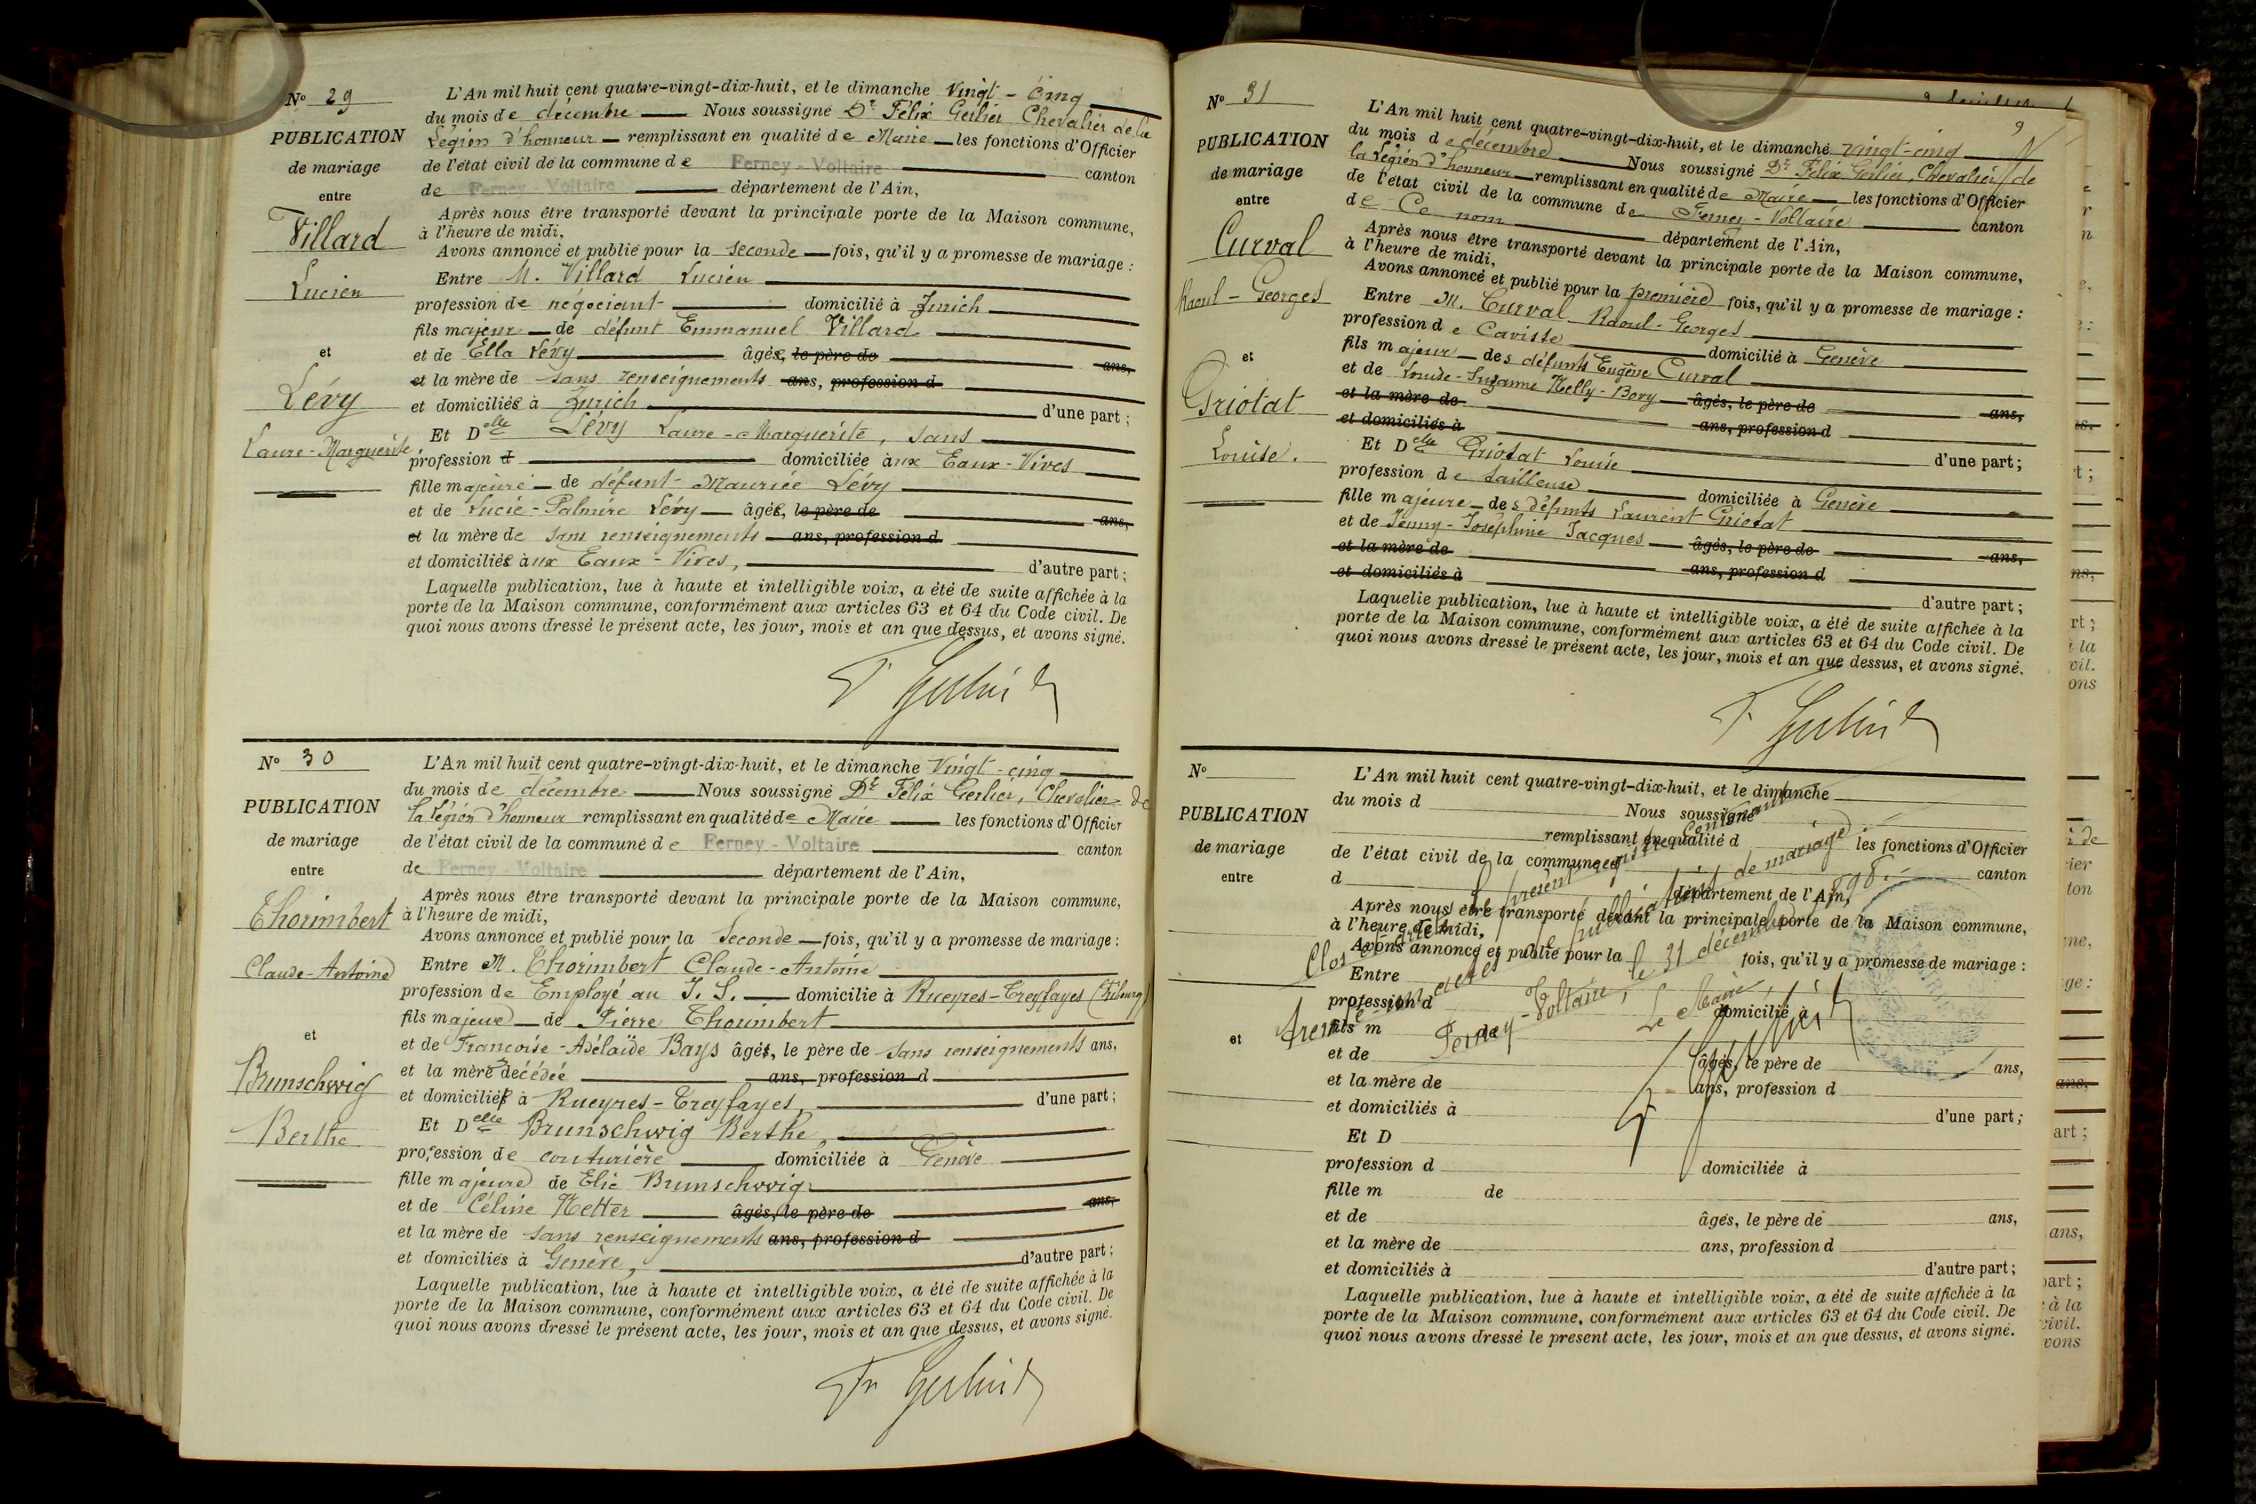 N° 29
PUBLICATION
de mariage
entre
Villard
Lucien
et
Lévy
Laure-Marguerite
L'An mil huit cent quatre-vingt-dix-huit, et le dimanche Vingt-cinq
du mois de décembre Nous soussigné Dr Félix Gerlier Chevalier de la
Légion d'honneur remplissant en qualité de Maire les fonctions d'Officier
de l'état civil de la commune de Ferney-Voltaire canton
de Ferney-Voltaire département de l'Ain,
Après nous être transporté devant la principale porte de la Maison commune,
à l'heure de midi,
Avons annoncé et publié pour la seconde fois, qu'il y a promesse de mariage :
Entre M. Villard Lucien
profession de négociant domicilié à Zurich
fils majeur de défunt Emmanuel Villard
et de Ella Lévy âgés, le père de ans,
et la mère de sans renseignements ans, profession d
et domiciliés à Zurich d'une part ;
Et Delle Lévy Laure-Marguerite, sans
profession d domiciliée aux Eaux-Vives
fille majeure de défunt Maurice Lévy
et de Lucie-Palmire Lévy âgés, le père de ans,
et la mère de sans renseignements ans, profession d
et domiciliés aux Eaux-Vives, d'autre part ;
Laquelle publication, lue à haute et intelligible voix, a été de suite affichée à la
porte de la Maison commune, conformément aux articles 63 et 64 du Code civil. De
quoi nous avons dressé le présent acte, les jour, mois et an que dessus, et avons signé.
F Gerlier
N° 30
PUBLICATION
de mariage
entre
Thorimbert
Claude-Antoine
et
Brunschwig
Berthe
L'An mil huit cent quatre-vingt-dix-huit, et le dimanche Vingt-cinq
du mois de décembre Nous soussigné Dr Félix Gerlier, Chevalier de
la Légion d'honneur remplissant en qualité de Maire les fonctions d'Officier
de l'état civil de la commune de Ferney-Voltaire canton
de Ferney-Voltaire département de l'Ain,
Après nous être transporté devant la principale porte de la Maison commune,
à l'heure de midi,
Avons annoncé et publié pour la Seconde fois, qu'il y a promesse de mariage :
Entre M. Thorimbert Claude-Antoine
profession de Employé au J. S. domicilié à Rueyres-Treyfayes (Fribourg)
fils majeur de Pierre Thorimbert
et de Françoise-Adélaïde Bays âgés, le père de sans renseignements ans,
et la mère décédée ans, profession d
et domiciliés à Rueyres-Treyfayes, d'une part ;
Et Delle Brunschwig Berthe,
profession de couturière domiciliée à Genève
fille majeure de Elie Brunschwig
et de Céline Netter âgés, le père de ans,
et la mère de sans renseignements ans, profession d
et domiciliés à Genève, d'autre part ;
Laquelle publication, lue à haute et intelligible voix, a été de suite affichée à la
porte de la Maison commune, conformément aux articles 63 et 64 du Code civil. De
quoi nous avons dressé le présent acte, les jour, mois et an que dessus, et avons signé.
Gerlier
N° 31
PUBLICATION
de mariage
entre
Curval
Raoul-Georges
et
Griotat
Louise.
9
L'An mil huit cent quatre-vingt-dix-huit, et le dimanche vingt-cinq
du mois de décembre Nous soussigné Dr Félix Gerlier, Chevalier de
la Légion d'honneur remplissant en qualité de Maire les fonctions d'Officier
de l'état civil de la commune de Ferney-Voltaire canton
de Ce nom département de l'Ain,
Après nous être transporté devant la principale porte de la Maison commune,
à l'heure de midi,
Avons annoncé et publié pour la première fois, qu'il y a promesse de mariage :
Entre M. Curval Raoul-Georges
profession de Caviste domicilié à Genève
fils majeur des défunts Eugène Curval
et de Louise-Suzanne Nelly-Bory âgés, le père de ans,
et la mère de ans, profession d
et domiciliés à d'une part ;
Et Delle Griotat Louise
profession de tailleuse domiciliée à Genève
fille majeure des défunts Laurent Griotat
et de Jenny-Joséphine Jacques âgés, le père de ans,
et la mère de ans, profession d
et domiciliés à d'autre part ;
Laquelle publication, lue à haute et intelligible voix, a été de suite affichée à la
porte de la Maison commune, conformément aux articles 63 et 64 du Code civil. De
quoi nous avons dressé le présent acte, les jour, mois et an que dessus, et avons signé.
F. Gerlier
N°
PUBLICATION
de mariage
entre
et
L'An mil huit cent quatre-vingt-dix-huit, et le dimanche
du mois d Nous soussigné
remplissant en qualité d les fonctions d'Officier
de l'état civil de la commune d canton
d département de l'Ain,
Après nous être transporté devant la principale porte de la Maison commune,
à l'heure de midi,
Avons annoncé et publié pour la fois, qu'il y a promesse de mariage :
Entre
profession d domicilié à
fils m de
et de âgés, le père de ans,
et la mère de ans, profession d
et domiciliés à d'une part ;
Et D
profession d domiciliée à
fille m de
et de âgés, le père de ans,
et la mère de ans, profession d
et domiciliés à d'autre part ;
Laquelle publication, lue à haute et intelligible voix, a été de suite affichée à la
porte de la Maison commune, conformément aux articles 63 et 64 du Code civil. De
quoi nous avons dressé le présent acte, les jour, mois et an que dessus, et avons signé.
Clos et arrêté le présent registre contenant
trente et un actes de publications de mariage
Ferney-Voltaire, le 31 décembre 1898.
Le Maire,
Gerlier